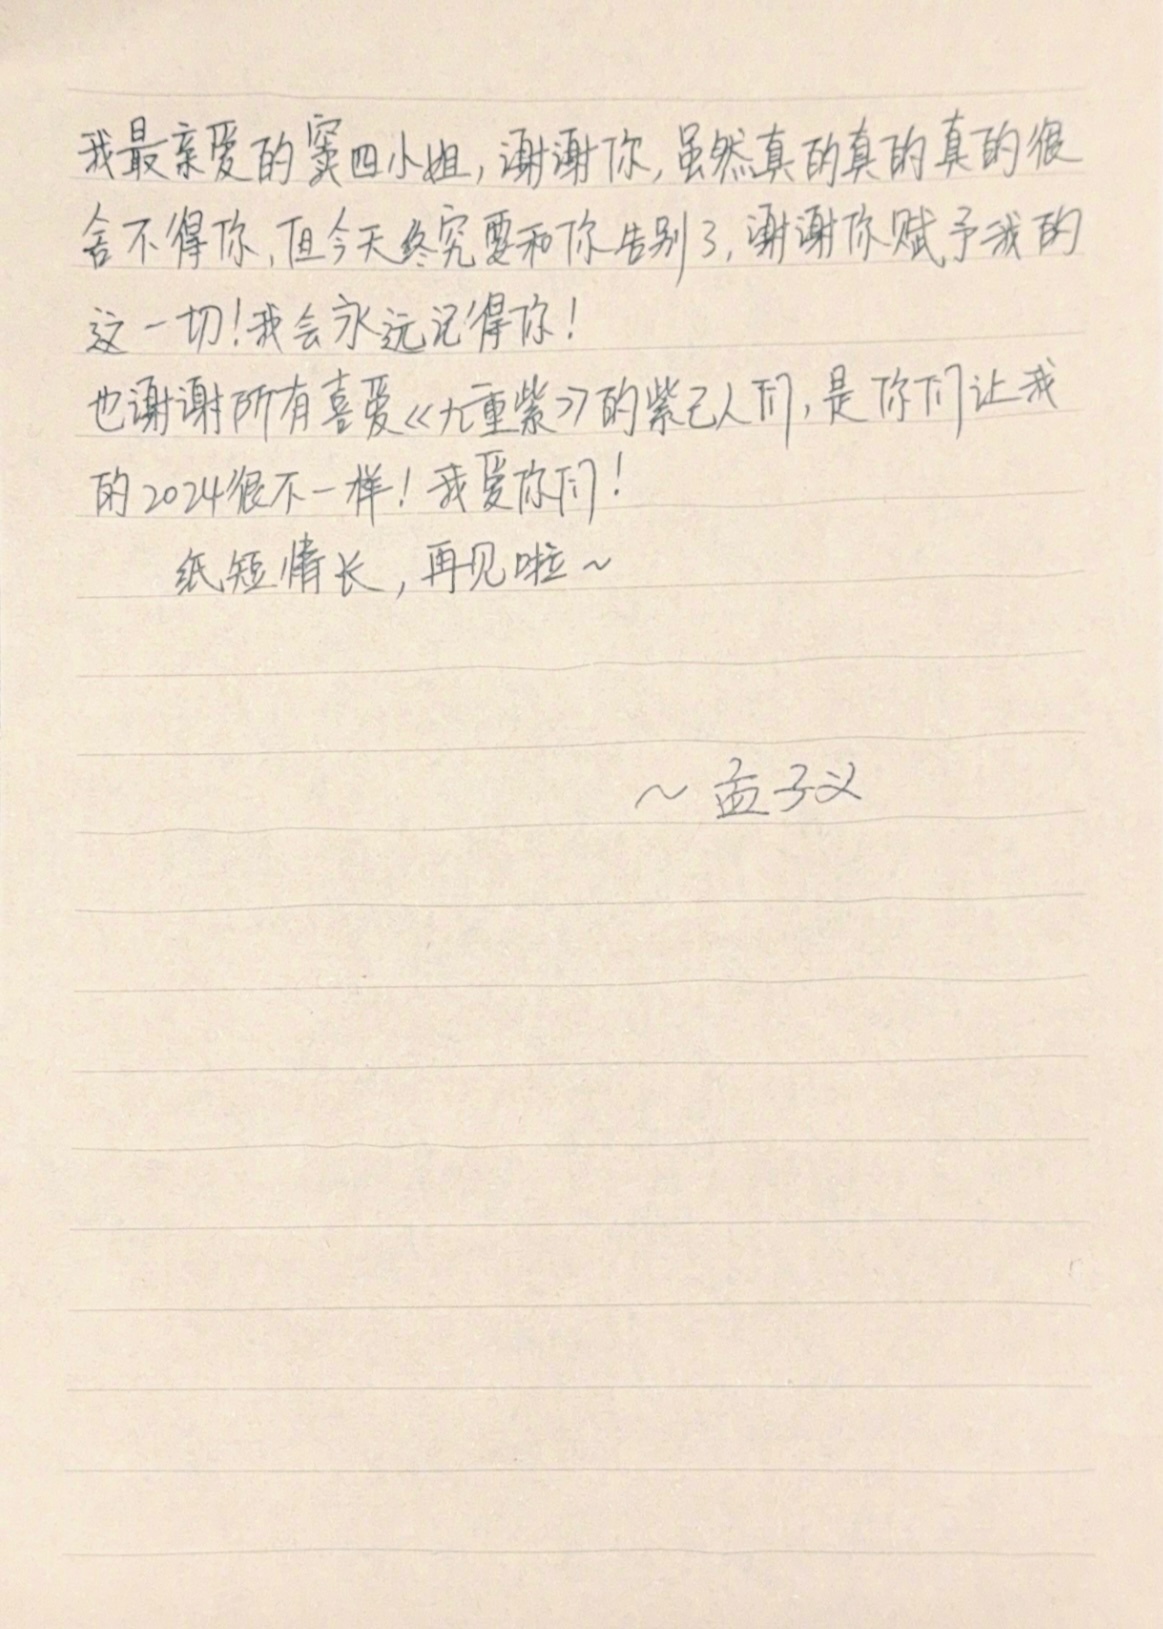 我最亲爱的窦四小姐，谢谢你，虽然真的真的真的很
舍不得你，但今天终究要和你告别了，谢谢你赋予我的
这一切！我会永远记得你！
也谢谢所有喜爱《九重紫》的紫己人们，是你们让我
的2024很不一样！我爱你们！
纸短情长，再见啦~
~孟子义